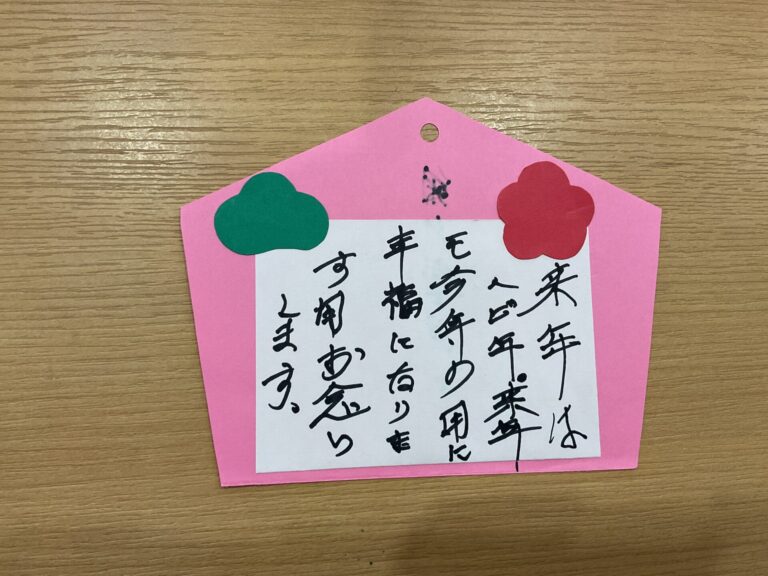 来年は
へび年。来年
モ今年の用に
幸福になりま
す用お念い
します。